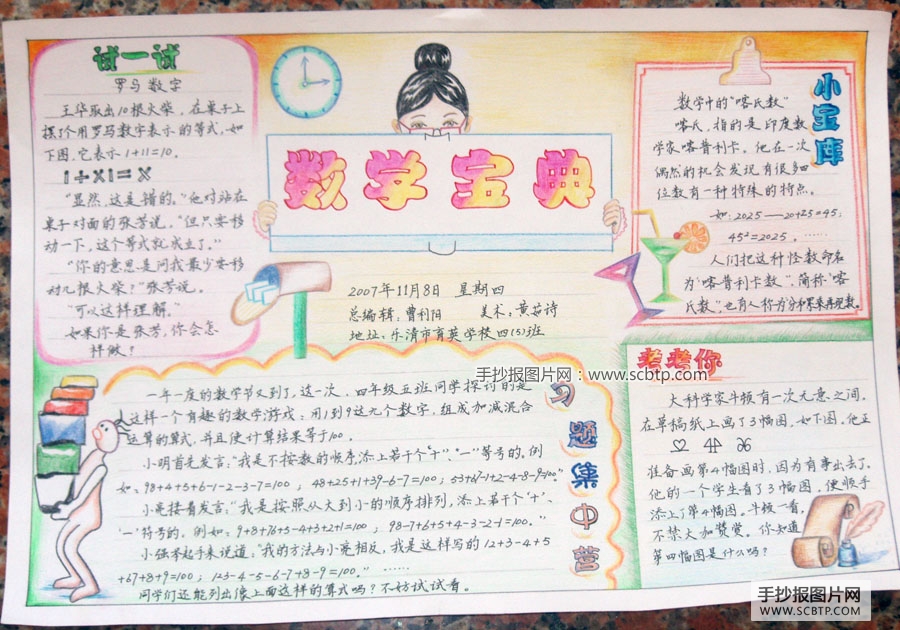 试一试
罗马数字
王华取出10根火柴，在桌子上
摆1个用罗马数字表示的等式，如
下图，它表示1+11=10。
1÷X1=X
“显然，这是错的。”他对站在
桌子对面的张芳说。“但只要移
动一下，这个等式就成立了。”
“你的意思是问我最少要移
动几根火柴？”张芳说。
可以这样理解。”
如果你是张芳，你会怎
样做？
数学宝典
2007年11月8日 星期四
总编辑：曹利阳 美术：黄茹诗
地址：乐清市育英学校四(5)班
小宝库
数学中的“喀氏数”
喀氏，指的是印度数
学家喀普利卡。他在一次
偶然的机会发现有很多四
位数有一种特殊的特点。
如：2025——20+25=45；
45²=2025。……
人们把这种怪数命名
为“喀普利卡数”，简称“喀
氏数”，也有人称为分和累乘再现数。
习题集中营
一年一度的数学节又到了，这一次，四年级五班同学探讨的是
这样一个有趣的数学游戏：用1到9这九个数字，组成加减混合
运算的算式，并且使计算结果等于100。
小明首先发言：“我是不按数的顺序，添上若干个“+”、“—”等号的，例
如：98+4+5+6-1-2-3-7=100；48+25+1+39-6-7=100；53+67-1+2-4-8-9=100。”
小亮接着发言：“我是按照从大到小的顺序排列，添上若干个‘+’、
‘—’符号的，例如：9+8+76+5-4+3+2+1=100；98-7+6+5+4-3-2-1=100。”
小强举起手来说道，“我的方法与小亮相反，我是这样写的12+3-4+5
+67+8+9=100；123-4-5-6-7+8-9=100。” ……
同学们还能列出像上面这样的算式吗？不妨试试看。
考考你
大科学家斗顿有一次无意之间，
在草稿纸上画了3幅图，如下图。他正
准备画第4幅图时，因为有事出去了。
他的一个学生看了3幅图，便顺手
添上了第4幅图。斗顿一看，
不禁大加赞赏。你知道
第四幅图是什么吗？
手抄报图片网：www.scbtp.com
手抄报图片网
WWW.SCBTP.COM